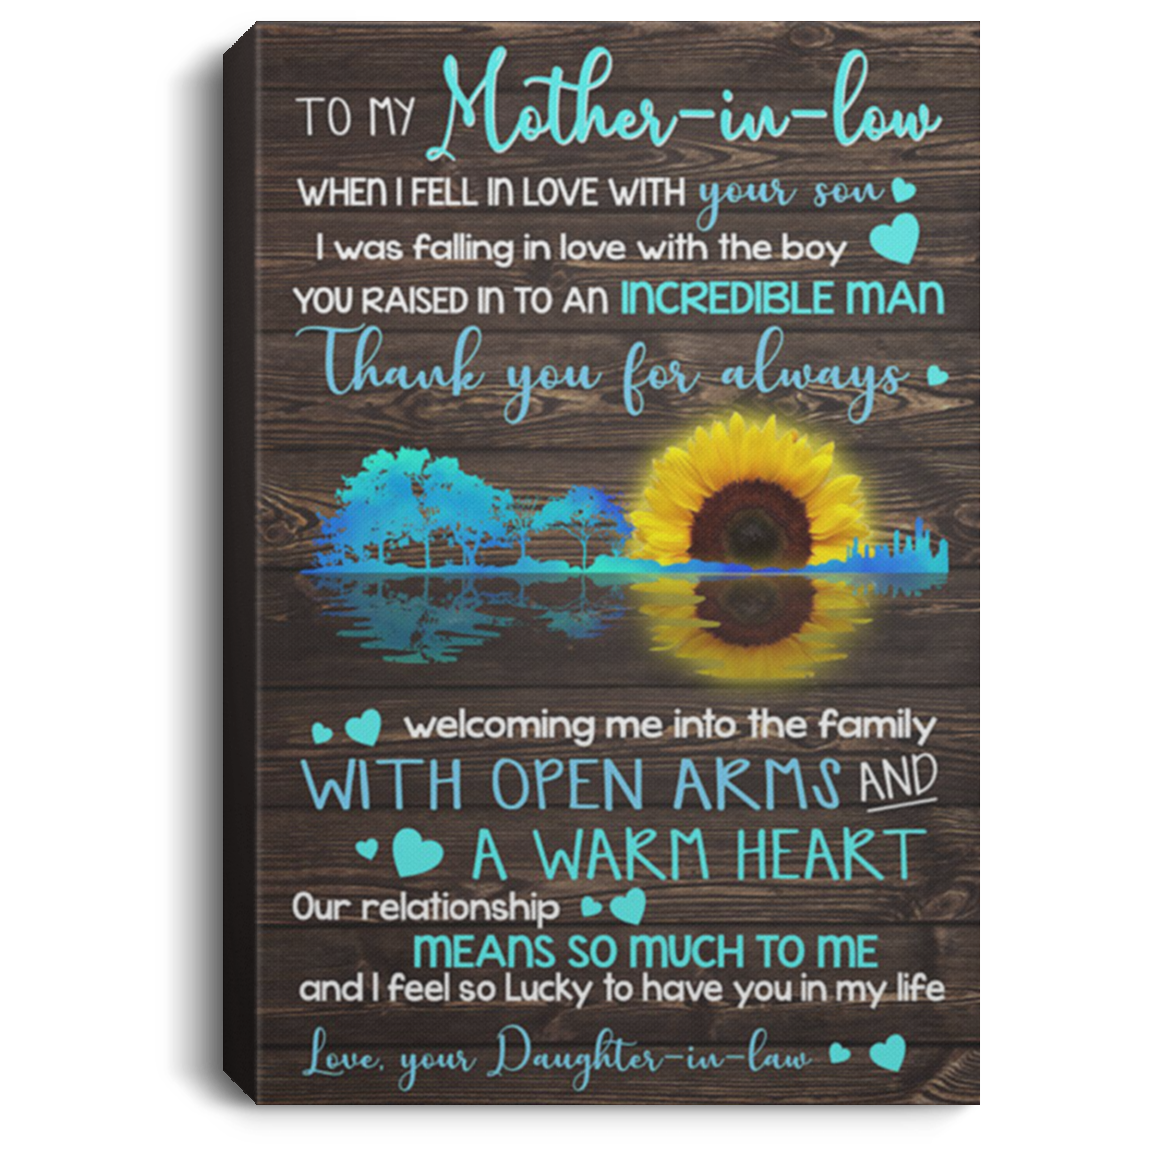 TO MY Mother-in-low
WHEN I FELL IN LOVE WITH your son
I was falling in love with the boy
YOU RAISED IN TO AN INCREDIBLE MAN
Thank you for always
welcoming me into the family
WITH OPEN ARMS AND
A WARM HEART
Our relationship
MEANS SO MUCH TO ME
and I feel so Lucky to have you in my life
Love, your Daughter-in-law